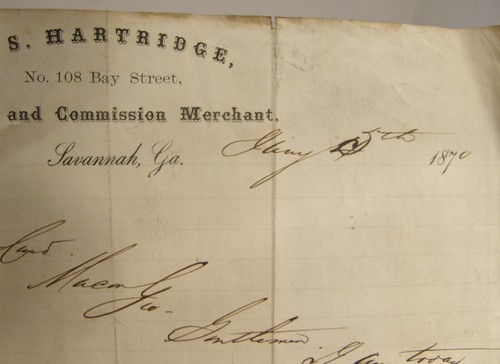 S. HARTRIDGE,
No. 108 Bay Street,
and Commission Merchant.
Savannah, Ga. 5th 1870
Macon Ga -
Gentlemen
I am today